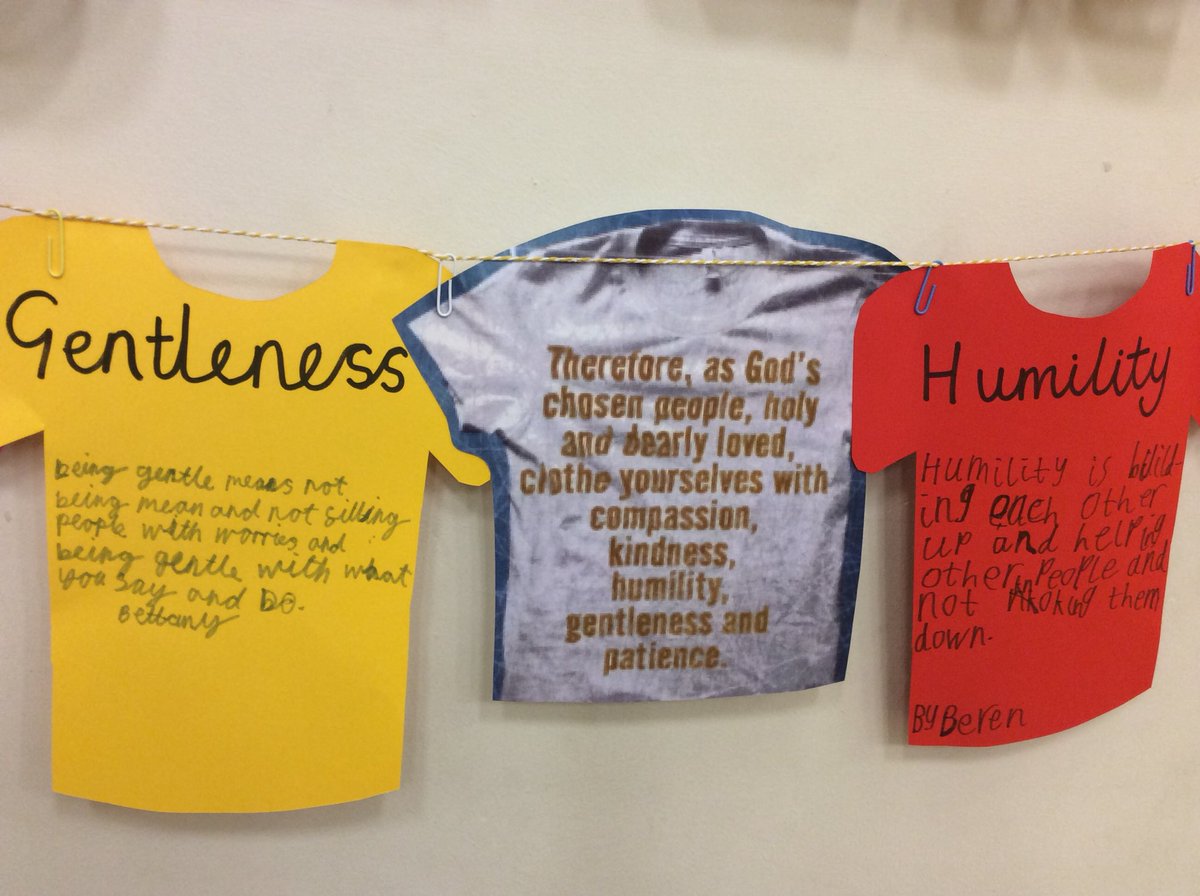 Gentleness
being gentle means not
being mean and not filling
people with worries and
being gentle with what
you say and Do.
Bethany
Therefore, as God's
chosen people, holy
and dearly loved,
clothe yourselves with
compassion,
kindness,
humility,
gentleness and
patience.
Humility
Humility is build-
ing each other
up and helping
other People and
not them
down.
By Beren